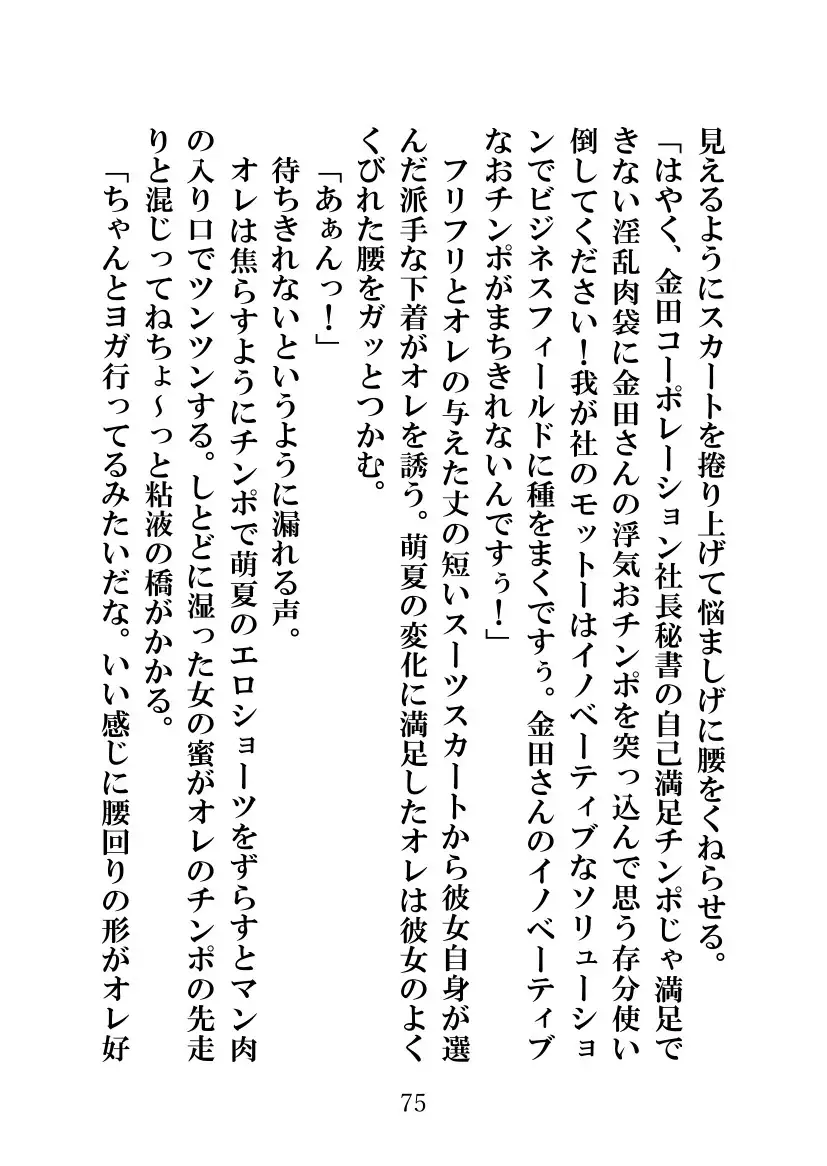 見えるようにスカートを捲り上げて悩ましげに腰をくねらせる。
「はやく、金田コーポレーション社長秘書の自己満足チンポじゃ満足で
きない淫乱肉袋に金田さんの浮気おチンポを突っ込んで思う存分使い
倒してください！我が社のモットーはイノベーティブなソリューショ
ンでビジネスフィールドに種をまくですぅ。金田さんのイノベーティブ
なおチンポがまちきれないんですぅ！」
フリフリとオレの与えた丈の短いスーツスカートから彼女自身が選
んだ派手な下着がオレを誘う。萌夏の変化に満足したオレは彼女のよく
くびれた腰をガッとつかむ。
「あぁんっ！」
待ちきれないというように漏れる声。
オレは焦らすようにチンポで萌夏のエロショーツをずらすとマン肉
の入り口でツンツンする。しとどに湿った女の蜜がオレのチンポの先走
りと混じってねちょ～っと粘液の橋がかかる。
「ちゃんとヨガ行ってるみたいだな。いい感じに腰回りの形がオレ好
75